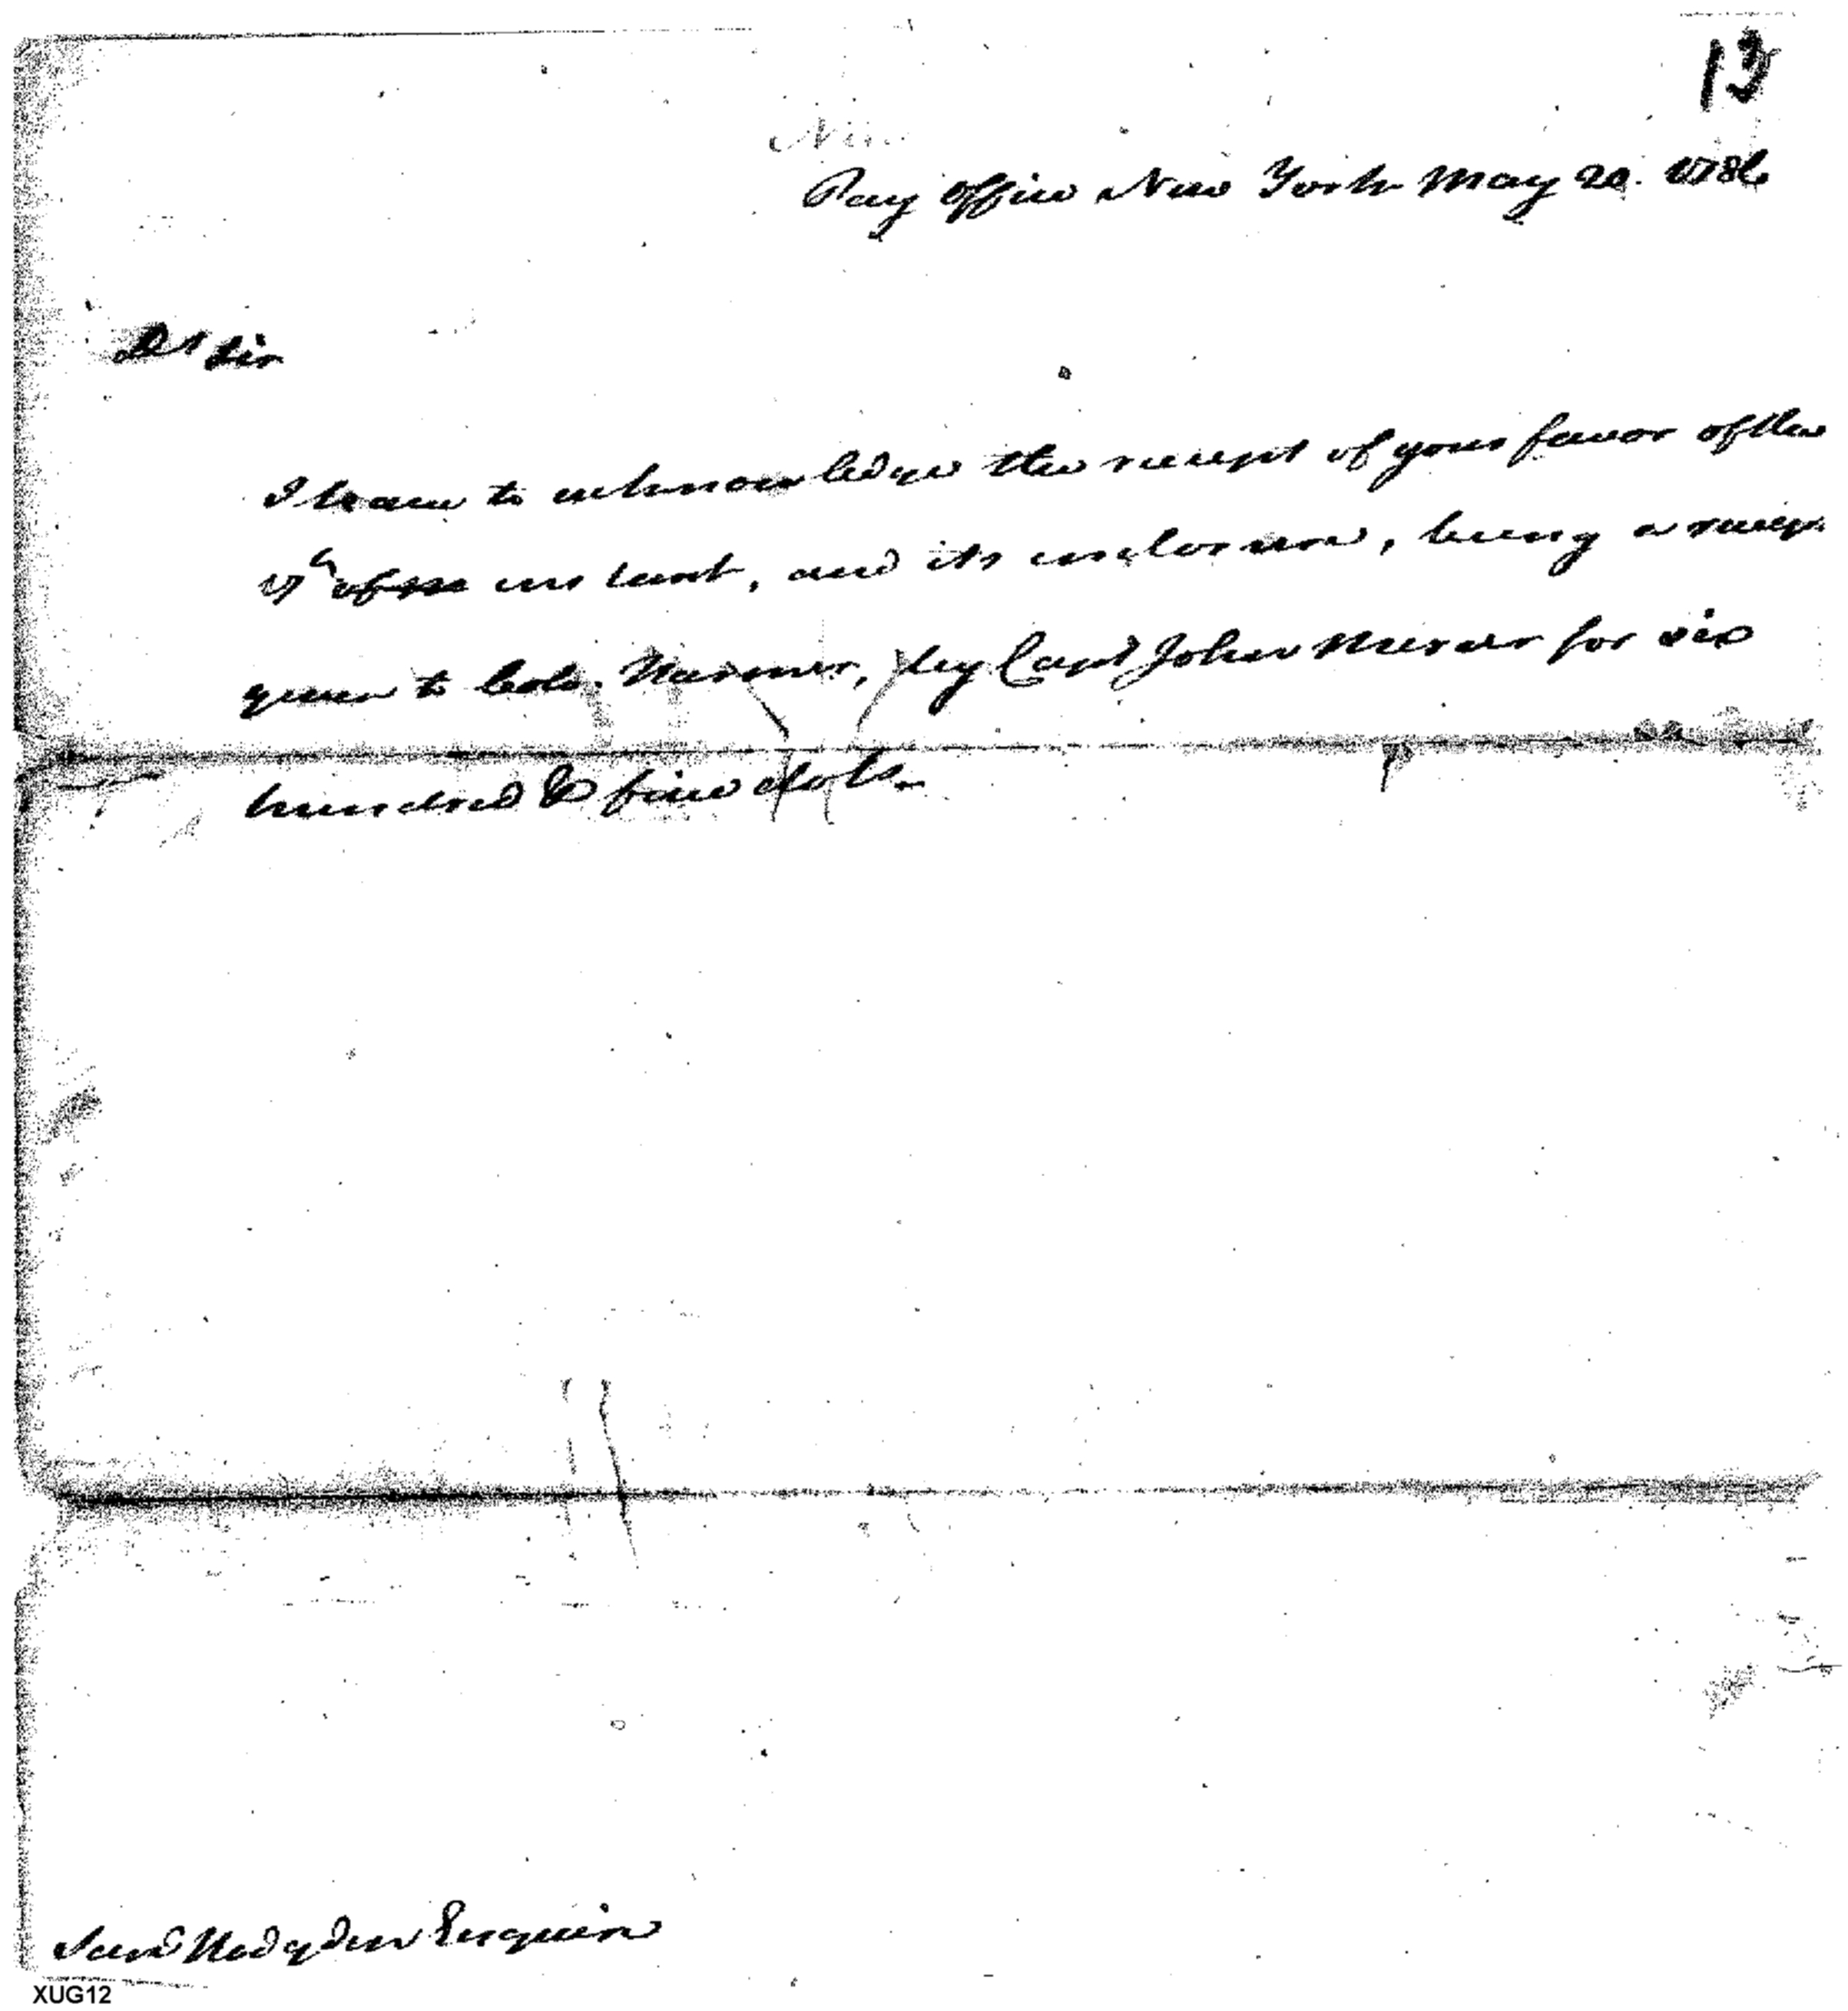 13
Pay Office New York May 20. 1786
Dr Sir
I have to acknowledge the receipt of your favor of the
17th instant, and its inclosure, being a receipt
given to Colo. Harmar, by Capt John Mercer for six
hundred & five dolls.
Saml Hodgdon Esquire
XUG12